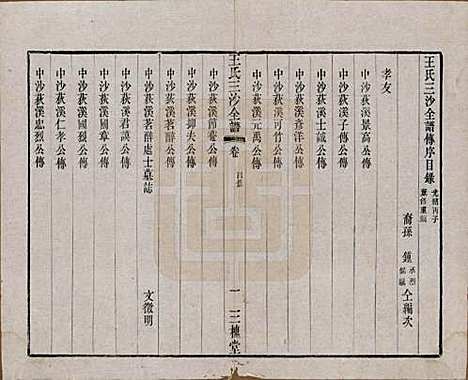 王氏三沙全譜傳序目錄
光緒丙子
重修原編
裔孫 鍾 仝編次
孝友
中沙荻溪景高公傳
中沙荻溪子修公傳
中沙荻溪士誠公傳
中沙荻溪彥洋公傳
中沙荻溪可竹公傳
中沙荻溪元萬公傳
王氏三沙全譜
卷
目錄
一
三槐堂
中沙荻溪公傳
中沙荻溪抑夫公傳
中沙荻溪茗醉公傳
中沙荻溪茗醉處士墓誌 文徵明
中沙荻溪君謨公傳
中沙荻溪國章公傳
中沙荻溪國穩公傳
中沙荻溪仁孝公傳
中沙荻溪公傳